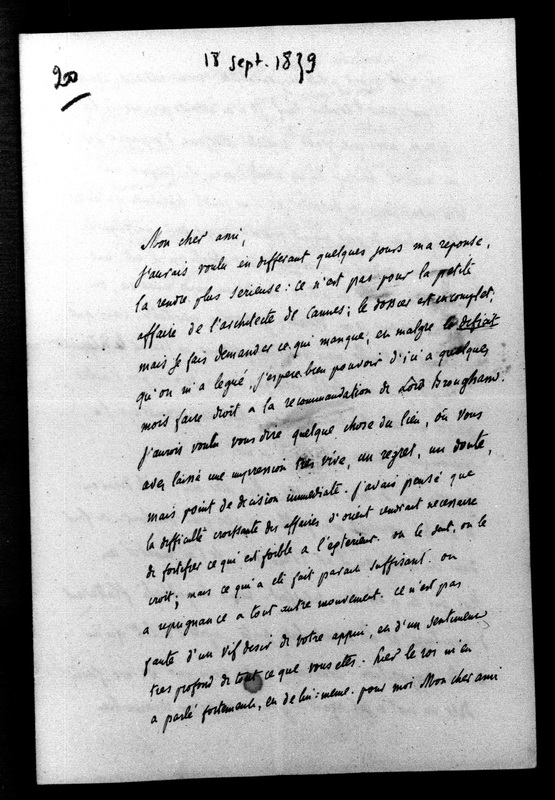 18 sept. 1839
200
Mon cher ami,
j'aurais voulu en differant quelques jours ma reponse,
la rendre plus serieuse : ce n'est pas pour la petite
affaire de l'architecte de Cannes ; le dossier est incomplet ;
mais je fais demander ce qui manque, et malgre le deficit
qu'on m'a legué, j'espere bien pouvoir d'ici a quelques
mois faire droit a la recommandation de Lord Brougham.
j'aurois voulu vous dire quelque chose du lieu, où vous
avez laissé une impression très vive, un regret, un doute,
mais point de decision immediate. j'avais pensé que
la difficulté croissante des affaires d'orient rendrait necessaire
de fortifier ce qui est foible a l'exterieur. on le sent, on le
croit ; mais ce qui a été fait parait suffisant. on
a repugnance a tout autre mouvement. ce n'est pas
faute d'un vif desir de votre appui, et d'un sentiment
tres profond de tout ce que vous etes. hier le roi m'en
a parlé fortement, et de lui-meme. pour moi Mon cher ami